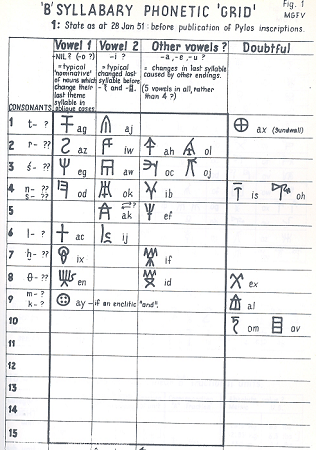 'B' SYLLABARY PHONETIC 'GRID'
Fig. 1
MGFV
1: State as at 28 Jan 51: before publication of Pylos inscriptions.
Vowel 1 Vowel 2 Other vowels ? Doubtful
-NIL? (-o ?) -i ? -a, -e, -u ?
= typical 'nominative' of nouns which change their last syllable in oblique cases.
= typical changed last syllable before
= changes in last syllable caused by other endings.
(5 vowels in all, rather than 4 ?)
CONSONANTS
1 t- ? ag aj ax (Sundwall)
2 r- ?? az iw ah ol
3 ś- ?? eg aw oc oj
4 n- ?? s- ?? od ok ib is oh
5 ak ef
6 l- ? ac ij
7 h- ?? ix if
8 θ- ?? en id ex
9 m- ? k- ? ay - if an enclitic "and". al
10 om av
11
12
13
14
15